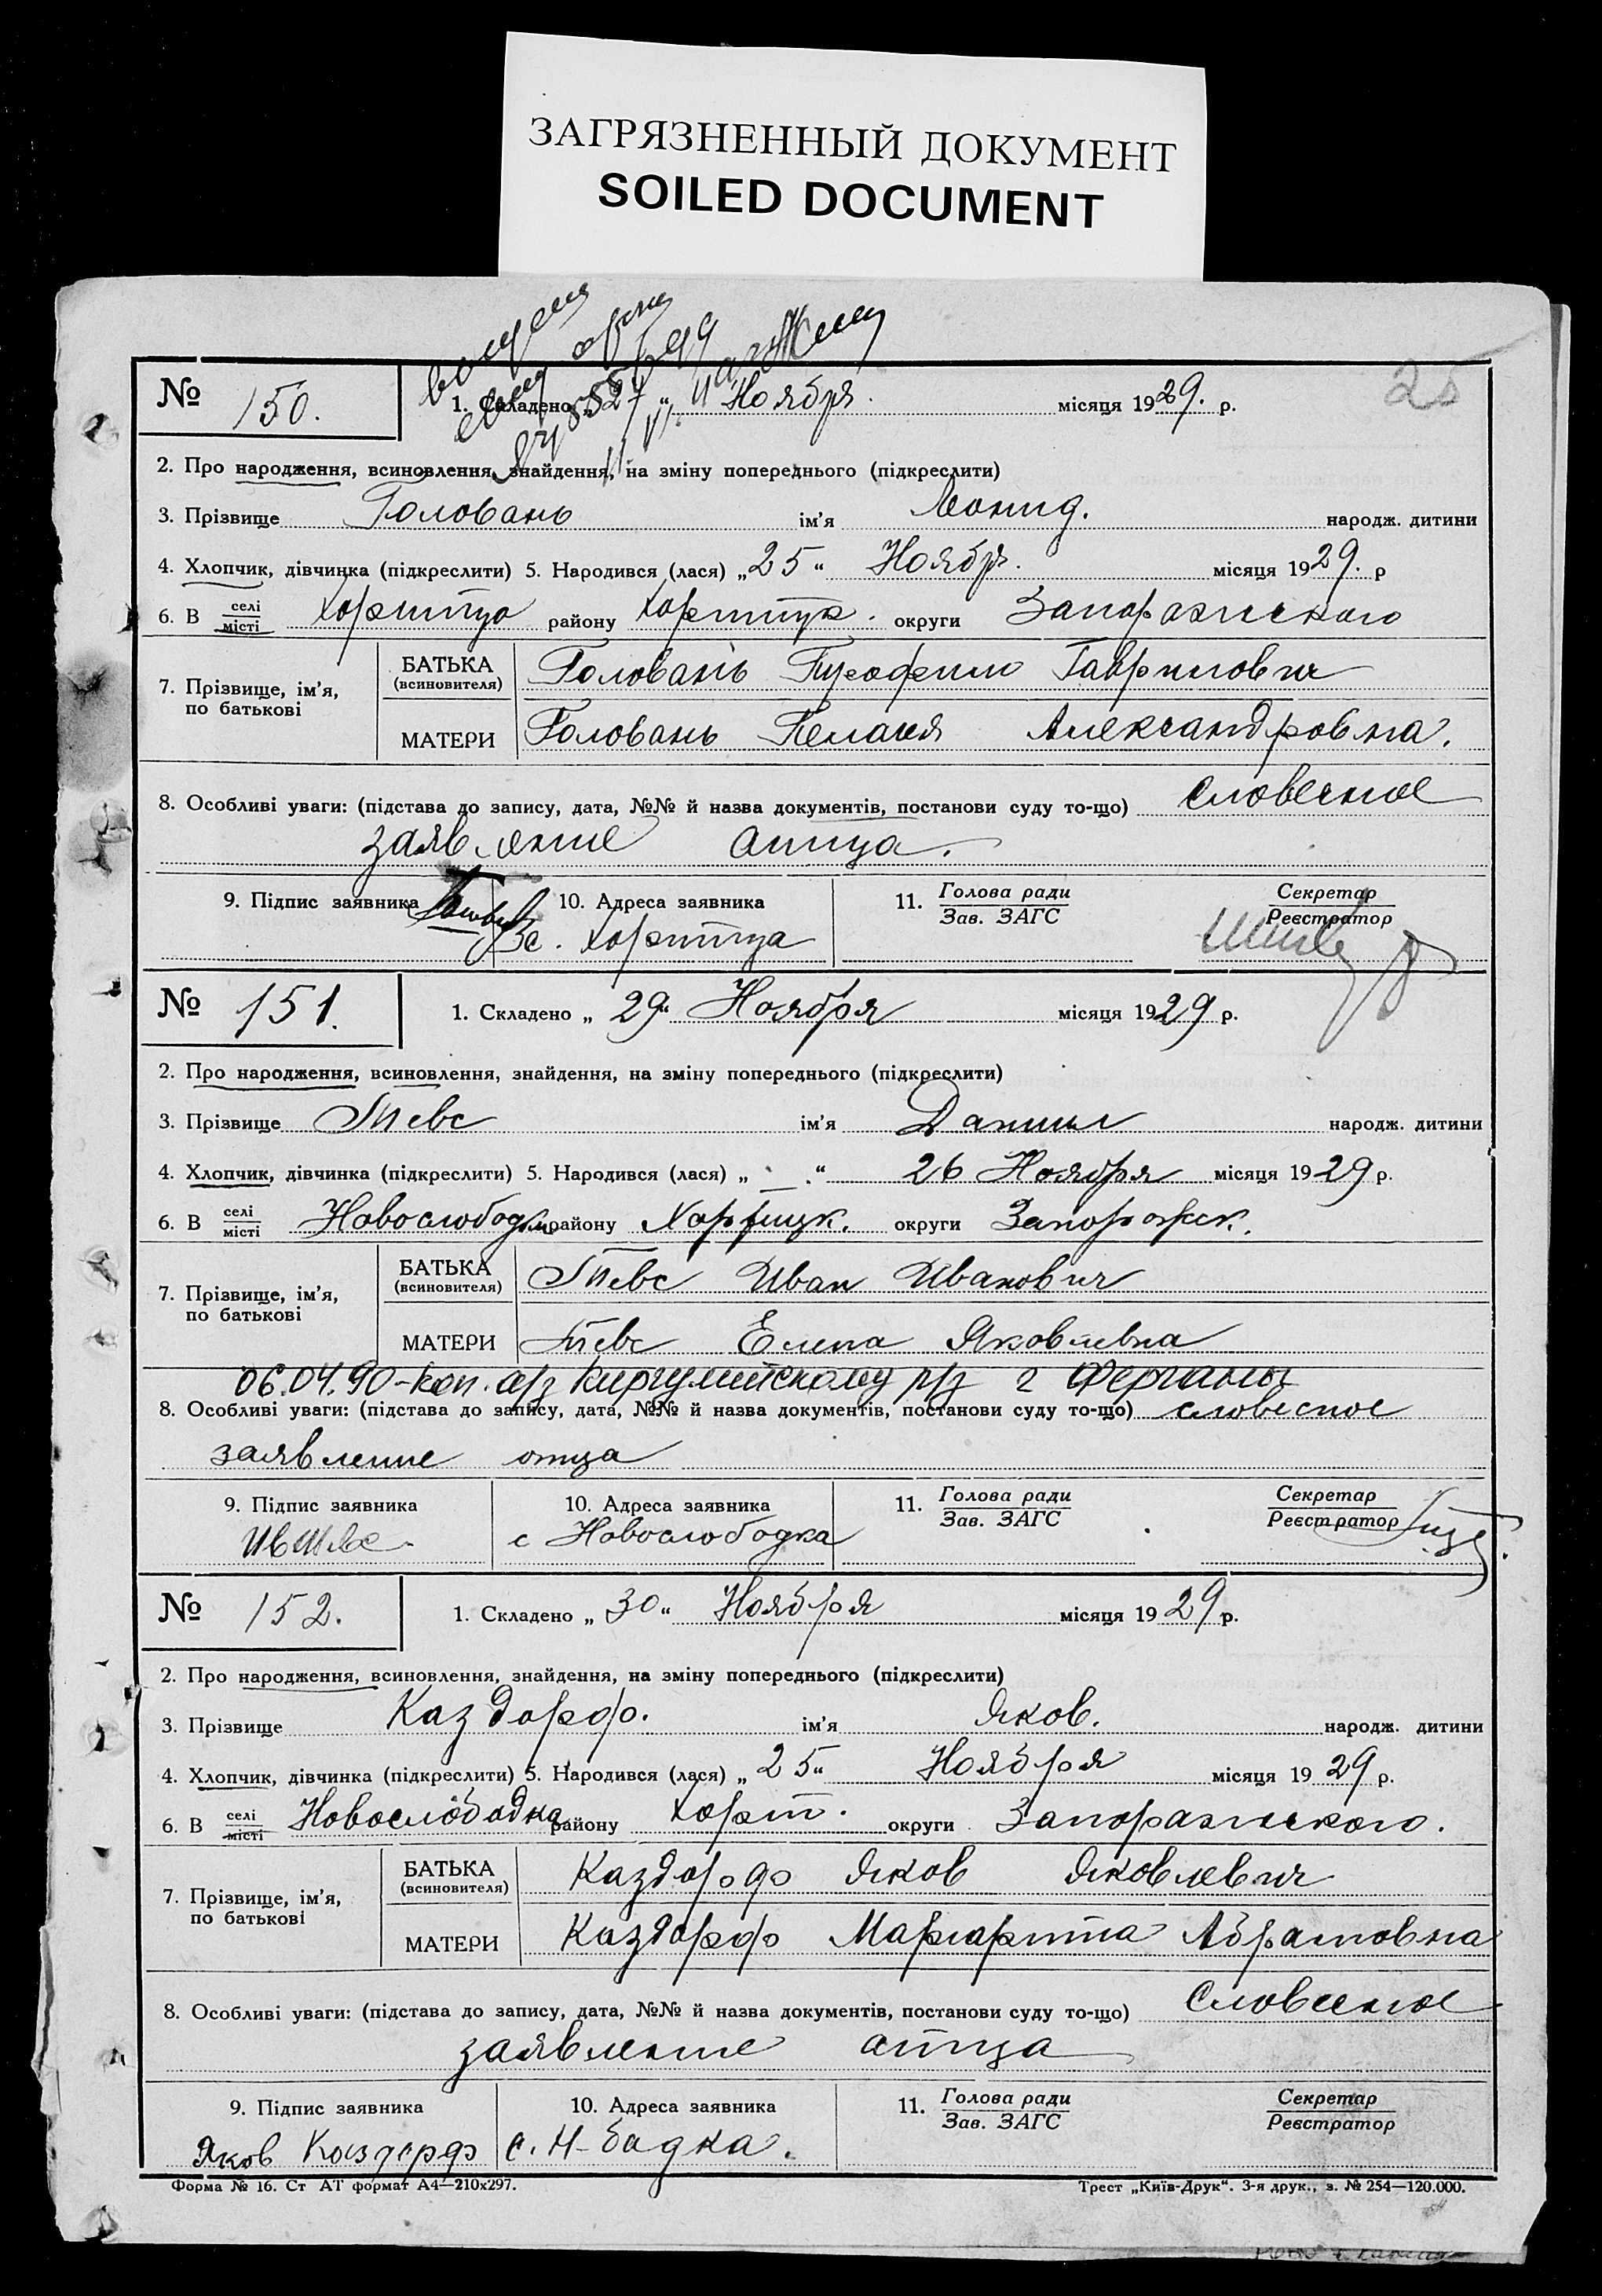 ЗАГРЯЗНЕННЫЙ ДОКУМЕНТ
SOILED DOCUMENT
25
№ 150. 1. Складено „ 27 “ Ноября. місяця 1929. р.
2. Про народження, всиновлення, знайдення, на зміну попереднього (підкреслити)
3. Прізвище Головань ім'я Леонид. народж. дитини
4. Хлопчик, дівчинка (підкреслити) 5. Народився (лася) „25“ Ноябр. місяця 1929. р
6. В селі місті Хортица району Хортицк. округи Запорожского
7. Прізвище, ім'я, по батькові
БАТЬКА (всиновителя) Головань Гаврилович
МАТЕРИ Головань Пелагея Александровна.
8. Особливі уваги: (підстава до запису, дата, №№ й назва документів, постанови суду то-що) словесное
заявление отца.
9. Підпис заявника 10. Адреса заявника 11. Голова ради Зав. ЗАГС Секретар Реєстратор
с. Хортица
№ 151. 1. Складено „ 29“ Ноября місяця 1929 р.
2. Про народження, всиновлення, знайдення, на зміну попереднього (підкреслити)
3. Прізвище Тевс ім'я Даниил народж. дитини
4. Хлопчик, дівчинка (підкреслити) 5. Народився (лася) „ “ 26 Ноября місяця 1929 р.
6. В селі місті Новослободка району Хортицк. округи Запорожск.
7. Прізвище, ім'я, по батькові
БАТЬКА (всиновителя) Тевс Иван Иванович
МАТЕРИ Тевс Елена Яковлевна
06.04.90-коп. а/з Киргулийскому р/з г Ферганы
8. Особливі уваги: (підстава до запису, дата, №№ й назва документів, постанови суду то-що) словесное
заявление отца
9. Підпис заявника 10. Адреса заявника 11. Голова ради Зав. ЗАГС Секретар Реєстратор
с Новослободка
№ 152. 1. Складено „ 30“ Ноября місяця 1929 р.
2. Про народження, всиновлення, знайдення, на зміну попереднього (підкреслити)
3. Прізвище Каздорф. ім'я Яков. народж. дитини
4. Хлопчик, дівчинка (підкреслити) 5. Народився (лася) „ 25“ Ноября місяця 1929 р.
6. В селі місті Новослободка району Хорт. округи Запорожского.
7. Прізвище, ім'я, по батькові
БАТЬКА (всиновителя) Каздорф Яков Яковлевич
МАТЕРИ Каздорф Маргарита Абрамовна
8. Особливі уваги: (підстава до запису, дата, №№ й назва документів, постанови суду то-що) Словесное
заявление отца
9. Підпис заявника 10. Адреса заявника 11. Голова ради Зав. ЗАГС Секретар Реєстратор
Яков Каздорф с. Н-бодка.
Форма № 16. Ст АТ формат А4—210х297. Трест „Київ-Друк“. 3-я друк., з. № 254—120.000.